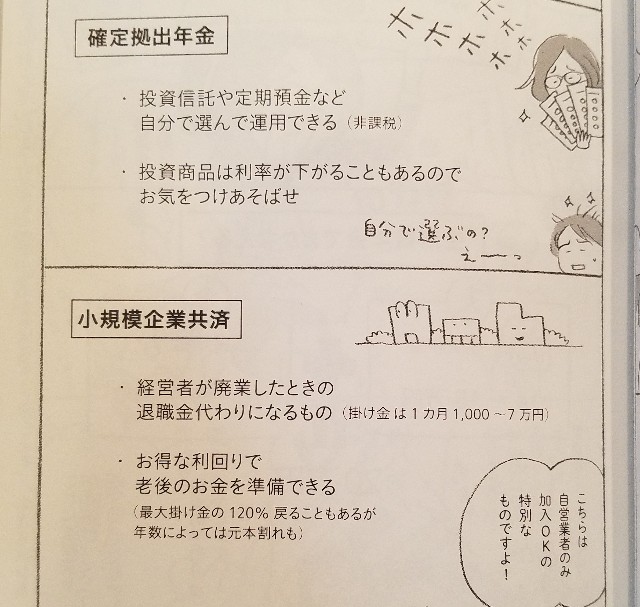 確定拠出年金
ホホホホホ
ホホホホ
・投資信託や定期預金など
自分で選んで運用できる（非課税）
・投資商品は利率が下がることもあるので
お気をつけあそばせ
自分で選ぶの？
えーーっ
小規模企業共済
・経営者が廃業したときの
退職金代わりになるもの（掛け金は1カ月1,000～7万円）
・お得な利回りで
老後のお金を準備できる
（最大掛け金の120%戻ることもあるが
年数によっては元本割れも）
こちらは
自営業者のみ
加入OKの
特別な
ものですよ！